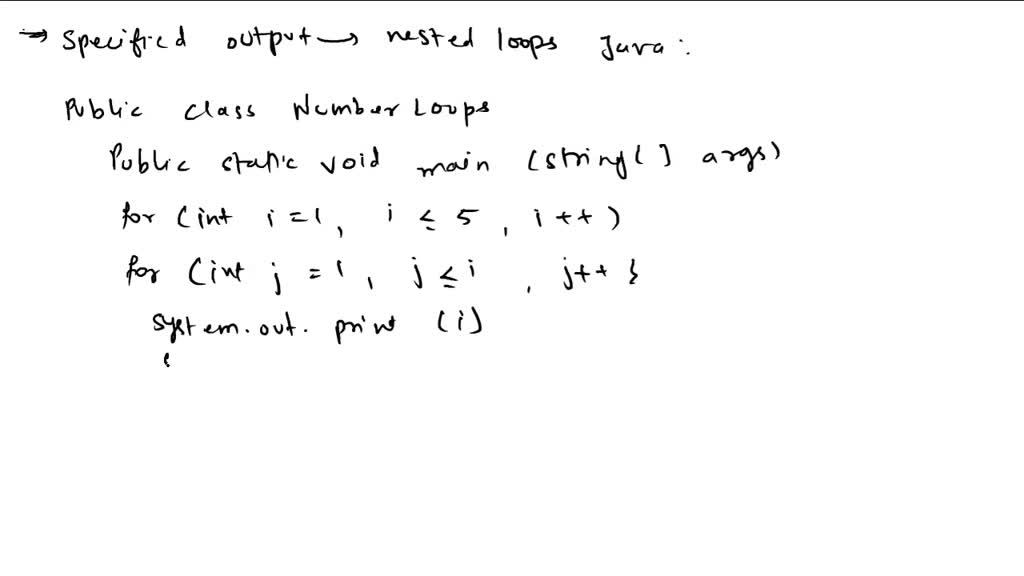 → Specified output → nested loops Java :
Public class Number Loops
Public static void main (string[ ] args)
for (int i = 1 , i ≤ 5 , i ++ )
for (int j = 1 , j ≤ i , j++ }
system.out. print (i)